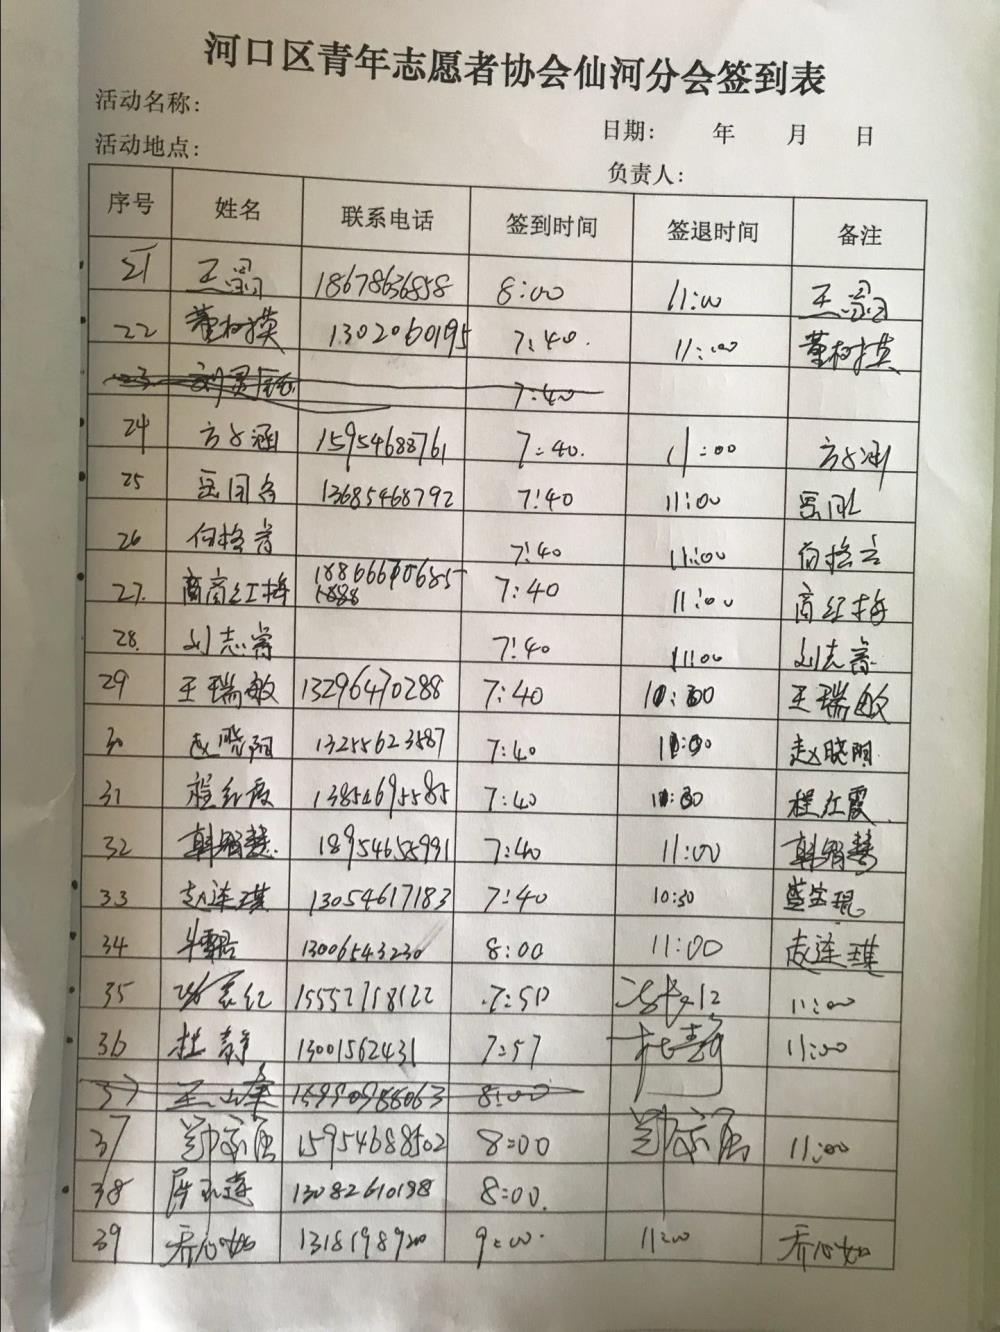 河口区青年志愿者协会仙河分会签到表
活动名称:
日期: 年 月 日
活动地点:
负责人:
序号 姓名 联系电话 签到时间 签退时间 备注
21 王 18678636858 8:00 11:00 王
22 董树英 1302060195 7:40. 11:00 董树英
23 7:40
24 方子涵 15954688761 7:40. 11:00 方子涵
25 13685468792 7:40 11:00
26 7:40 11:00
27. 商红梅 7:40 11:00 商红梅
28. 刘志睿 7:40 11:00 刘志睿
29 王瑞敏 13296470288 7:40 10:30 王瑞敏
30 赵晓阳 13255623587 7:40 10:30 赵晓阳
31 程红霞 13854695585 7:40 10:30 程红霞
32 韩智慧 18954655991 7:40 11:00 韩智慧
33 赵连琪 13054617183 7:40 10:30
34 13006543230 8:00 11:00 赵连琪
35 15552718122 7:50 11:00
36 杜静 13001562431 7:57 杜静 11:00
37 8:00
37 15954688502 8:00 11:00
38 13082610198 8:00.
39 乔心如 1318198920 9:00. 11:00 乔心如